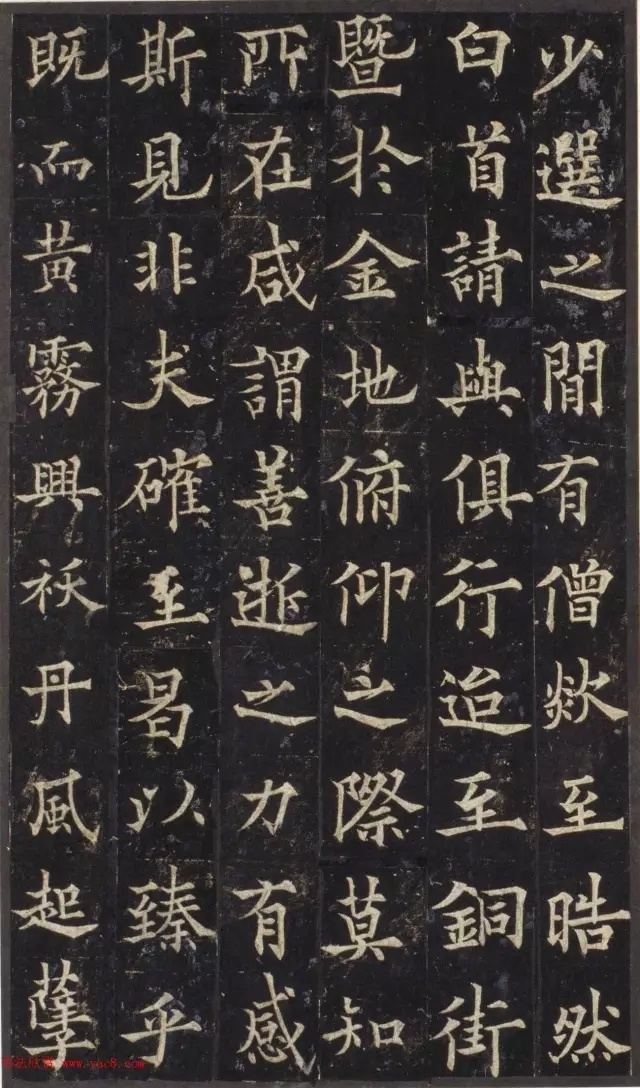 少選之間有僧欻至皓然
白首請與俱行迨至銅街
暨於金地俯仰之際莫知
所在咸謂善逝之力有感
斯見非夫確至曷以臻乎
既而黃霧興祅丹風起孽
www.yac8.com